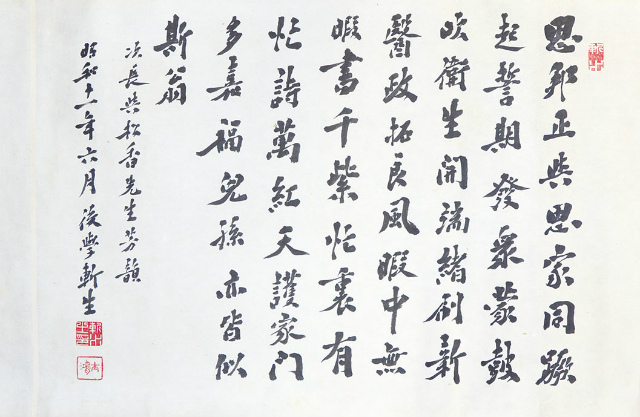 思邦正與思家同蹶
起誓期發眾蒙鼓
吹衛生開端緒刷新
醫政拓良風暇中無
暇書千紫忙裏有
忙詩萬紅天護家門
多嘉福兒孫亦皆似
斯翁
次長與松香先生芳韻
昭和十一年六月後學斬生